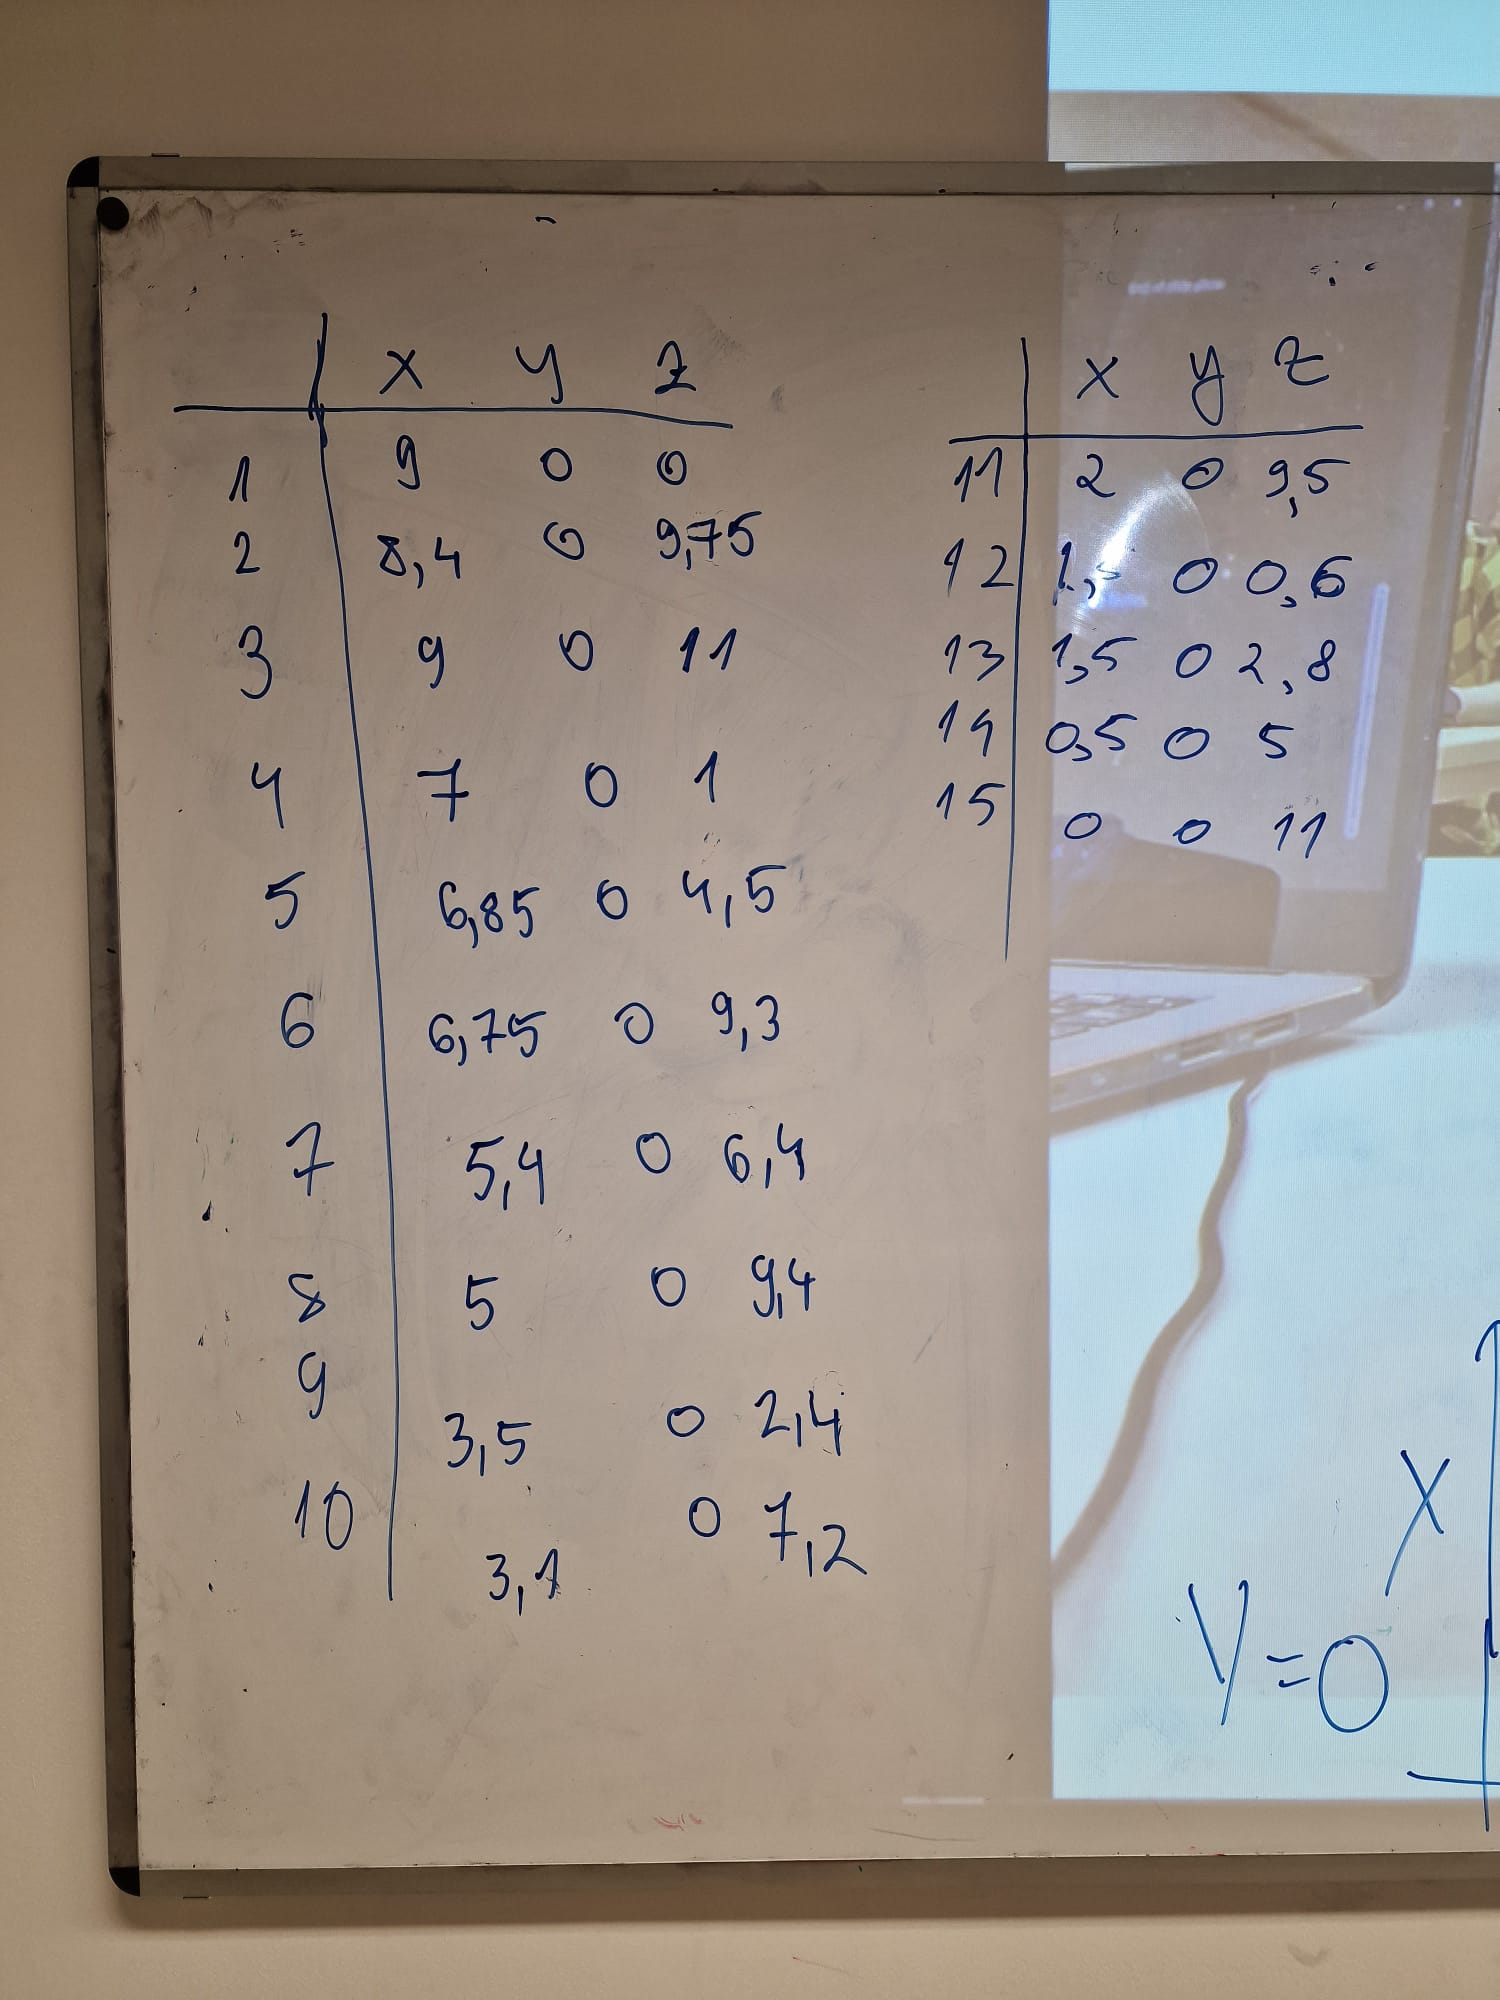 x y z
1 9 0 0
2 8,4 0 9,75
3 9 0 11
4 7 0 1
5 6,85 0 4,5
6 6,75 0 9,3
7 5,4 0 6,4
8 5 0 9,4
9 3,5 0 2,4
10 3,1 0 7,2
x y z
11 2 0 9,5
12 0 0,6
13 1,5 0 2,8
14 0,5 0 5
15 0 0 11
X
Y=0